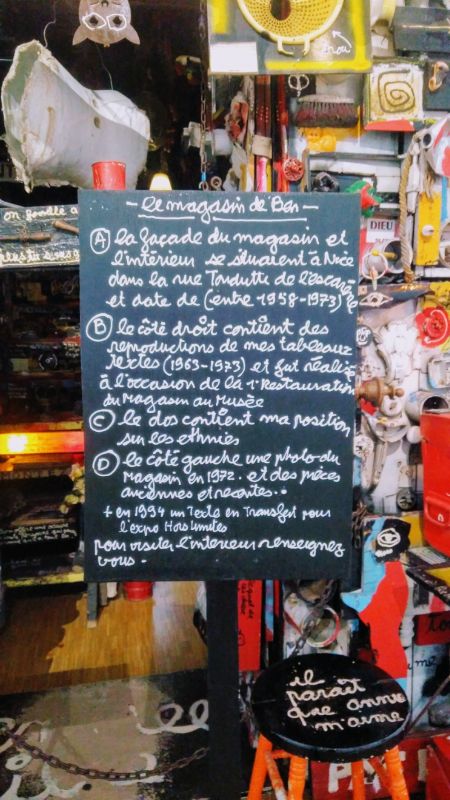 trou
on goutte a
DIEU
- le magasin de Ben -
A la façade du magasin et
l'intérieur se situaient à Nice
dans la rue Tondutti de l'escarène
et date de (entre 1958-1973)
B le côté droit contient des
reproductions de mes tableaux
textes (1963-1973) et fut réalisé
à l'occasion de la 1e Restauration
du Magasin au Musée
C le dos contient ma position
sur les ethnies
D le côté gauche une photo du
Magasin en 1972. et des pièces
anciennes et récentes..
+ en 1994 un Texte en Transfert pour
l'expo Hors Limites
pour visiter l'intérieur renseignez
vous -
il
paraît
que annie
m'aime